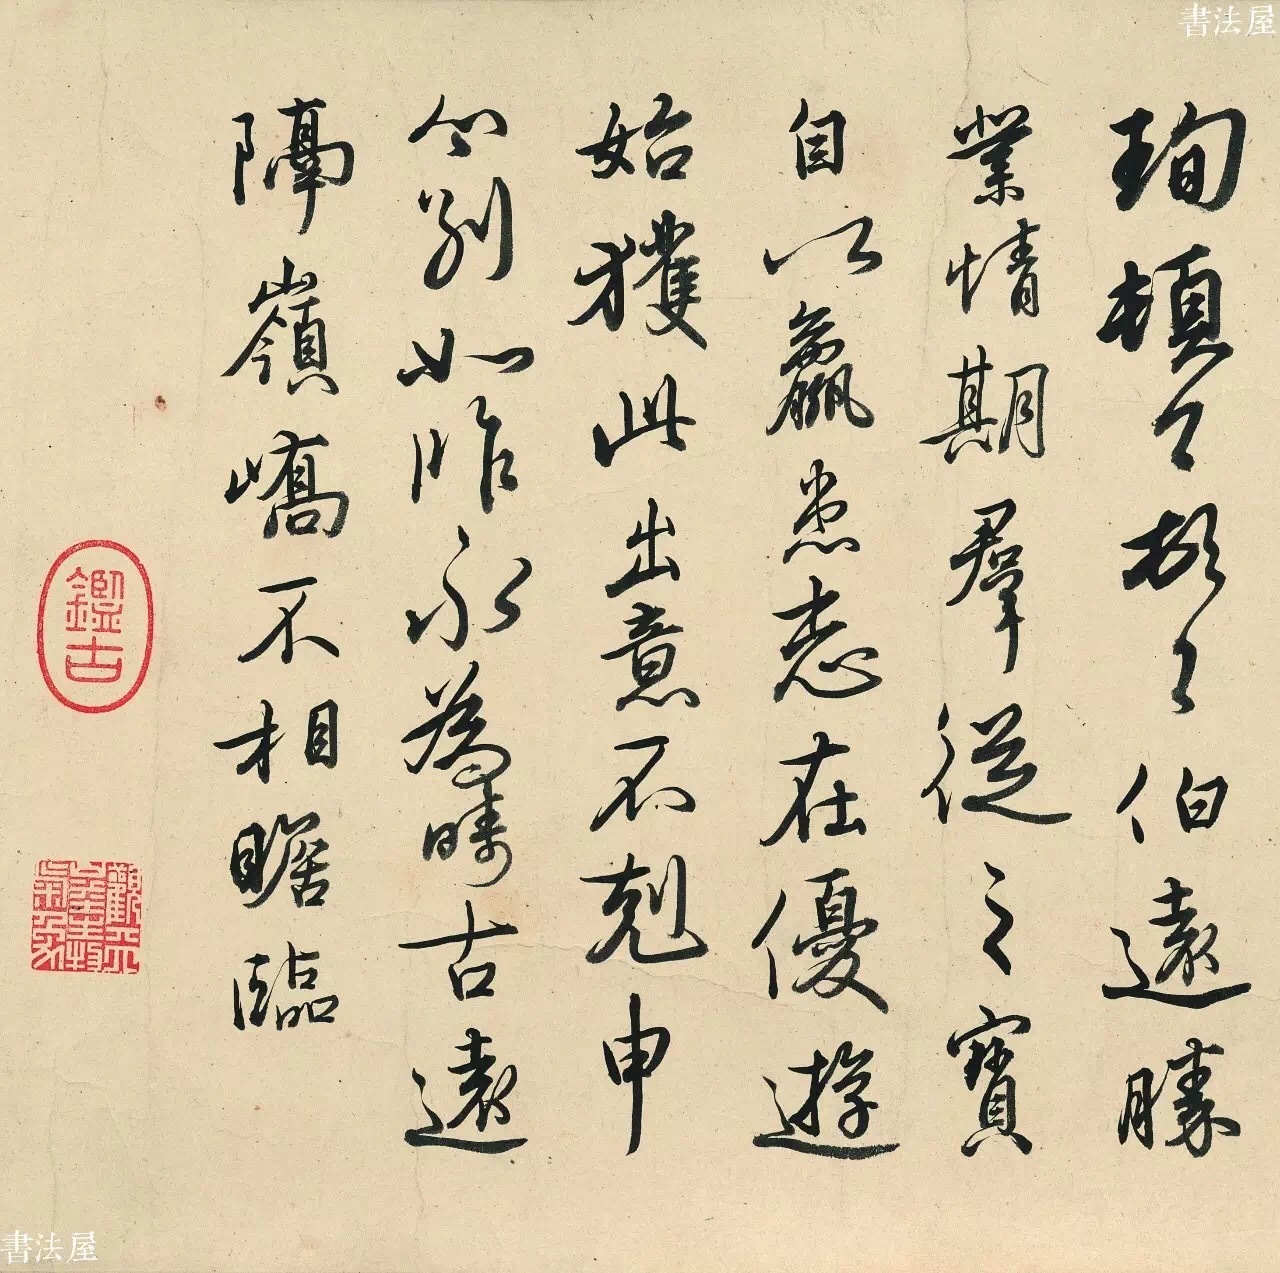 書法屋
珣頓々首々伯遠勝
業情期羣從之寶
自以羸患志在優遊
始獲此出意不剋申
分別如昨永為疇古遠
隔嶺嶠不相瞻臨
鑑古
書法屋